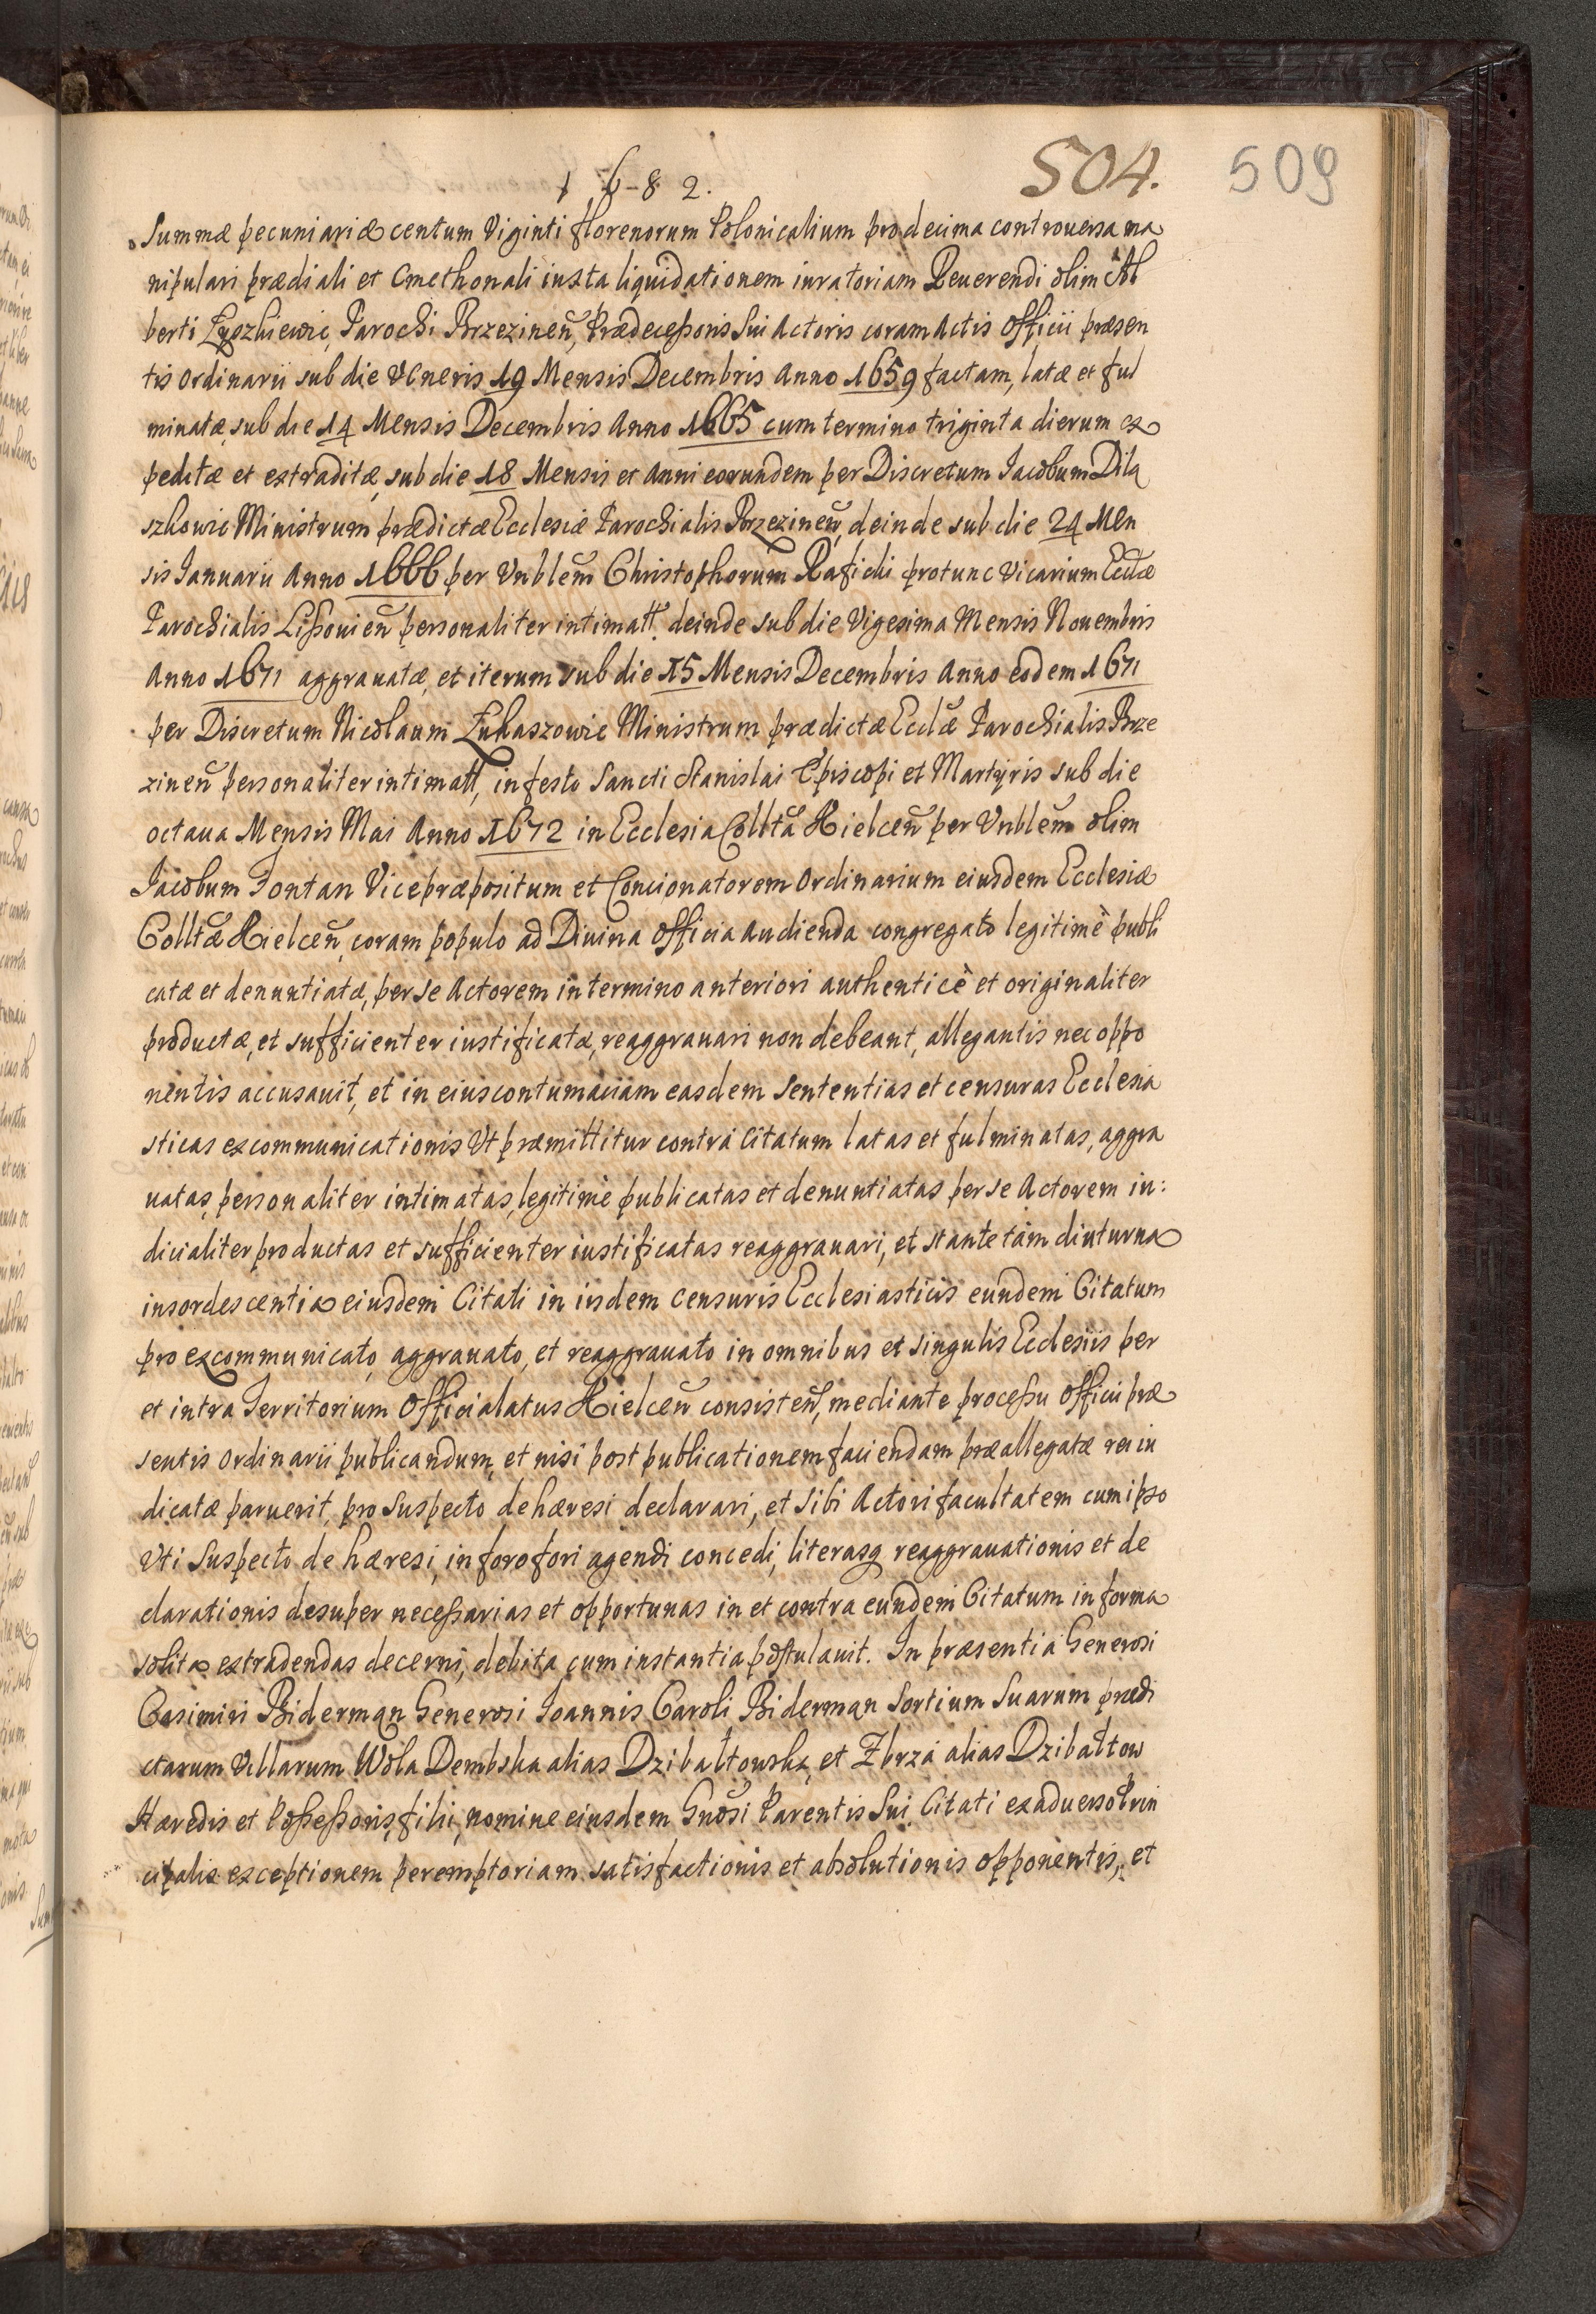 1 6-8 2.
504. 509
Summæ pecuniariæ centum Viginti florenorum Polonicalium pro decima controuersa ma
nipulari prædiali et Cmethonali iuxta liquidationem iuratoriam Reuerendi olim Al
berti Parochi Brzezineñ, Prædecessoris Sui Actoris coram Actis Officii præsen
tis Ordinarii sub die Veneris 19 Mensis Decembris Anno 1659 factam, latæ et ful
minatæ, sub die 14 Mensis Decembris Anno 1665 cum termino triginta dierum ex
peditæ et extraditæ, sub die 18 Mensis et Anni eorundem per Discretum Iacobum Dila
szkowic Ministrum prædictæ Ecclesiæ Parochialis Brzezineñ, deinde sub die 24 Men
sis Ianuarii Anno 1666 per Vnblem̃ Christophorum Raficki protunc Vicarium Eccl̃æ
Parochialis Lissouieñ personaliter intimatt. deinde sub die Vigesima Mensis Nouembris
Anno 1671 aggrauatæ, et iterum sub die 15 Mensis Decembris Anno eodem 1671
per Discretum Nicolaum Łukaszowic Ministrum prædictæ Eccl̃æ Parochialis Brze
zineñ personaliter intimatt, in festo Sancti Stanislai Episcopi et Martyris sub die
octaua Mensis Mai Anno 1672 in Ecclesia Colltã Kielceñ per Vnblem̃ olim
Iacobum Fontan Vicepræpositum et Concionatorem Ordinarium eiusdem Ecclesiæ
Colltæ̃ Kielceñ, coram populo ad Diuina Officia audienda congregato legitimè publi
catæ et denuntiatæ, per se Actorem in termino anteriori authenticè et originaliter
productæ, et sufficienter iustificatæ, reaggrauari non debeant, allegantis nec oppo
nentis accusauit, et in eius contumaciam easdem sententias et censuras Ecclesia
sticas excommunicationis Vt præmittitur contra Citatum latas et fulminatas, aggra
uatas, personaliter intimatas, legitimè publicatas et denuntiatas per se Actorem iu:
dicialiter productas et sufficienter iustificatas reaggrauari, et stante tàm diuturna
insordescentia eiusdem Citati in iisdem censuris Ecclesiasticis eundem Citatum
pro excommunicato, aggrauato, et reaggrauato in omnibus et singulis Ecclesiis per
et intra Territorium Officialatus Kielceñ consisteñ, mediante processu Officii præ
sentis Ordinarii publicandum, et nisi post publicationem faciendam præallegatæ rei iu
dicatæ paruerit, pro Suspecto de hæresi declarari, et Sibi Actori facultatem cum ipso
Vti Suspecto de hæresi, in foro fori agendi concedi, literasq reaggrauationis et de
clarationis desuper necessarias et opportunas in et contra eundem Citatum in forma
solita extradendas decerni, debita cum instantia postulauit. In præsentia Generosi
Casimiri Biderman Generosi Ioannis Caroli Biderman Sortium Suarum prædi
ctarum Villarum Wola Dembska alias Dzibałtowska, et Zbrza alias Dzibałtow
Hæredis et Possessoris, filii, nomine eiusdem Gnõsi Parentis Sui Citati exaduerso Prin
cipalis exceptionem peremptoriam satisfactionis et absolutionis opponentis, et